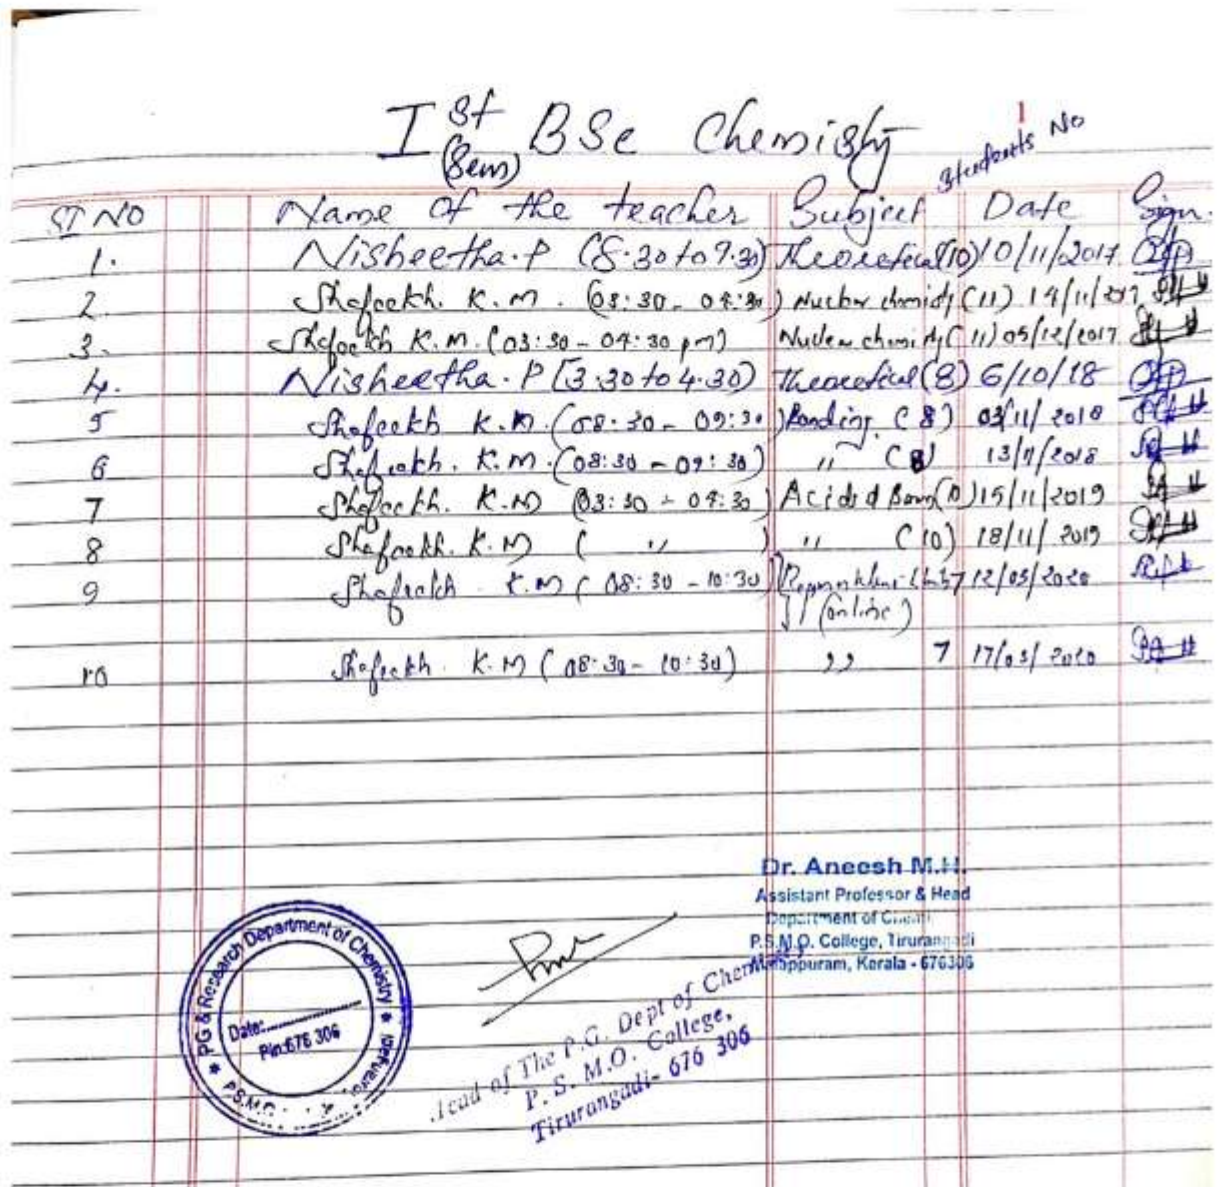 1
Students No
Ist BSc Chemistry
(Sem)
Sl NO Name of the teacher Subject Date Sign.
1. Nisheetha.P (8.30 to 9.30) Theoretical (10) 10/11/2017
2. Shafeekh. K.M. (03:30 - 04:30) Nuclear chemistry (11) 14/11/2017
3. Shafeekh K.M. (03:30 - 04:30 pm) Nuclear chemistry (11) 05/12/2017
4. Nisheetha.P [3.30 to 4.30) Theoretical (8) 6/10/18
5 Shafeekh K.M. (08:30 - 09:30) Bonding (8) 03/11/2018
6 Shafeekh. K.M. (08:30 - 09:30) " (8) 13/11/2018
7 Shafeekh. K.M (03:30 - 04:30) Acids & Bases (10) 15/11/2019
8 Shafeekh. K.M ( " ) " (10) 18/11/2019
9 Shafeekh. K.M (08:30 - 10:30) 7 12/03/2020
(online)
10 Shafeekh. K.M (08:30 - 10:30) ,, 7 17/03/2020
Dr. Aneesh M.H.
Assistant Professor & Head
Department of
P.S.M.O. College, Tirurangadi
Malappuram, Kerala - 676306
PG & Research Department of Chemistry
Date:
Pin:676 306
P.S.M.O.
Head of The P.G. Dept of Chemistry
P. S. M.O. College,
Tirurangadi- 676 306